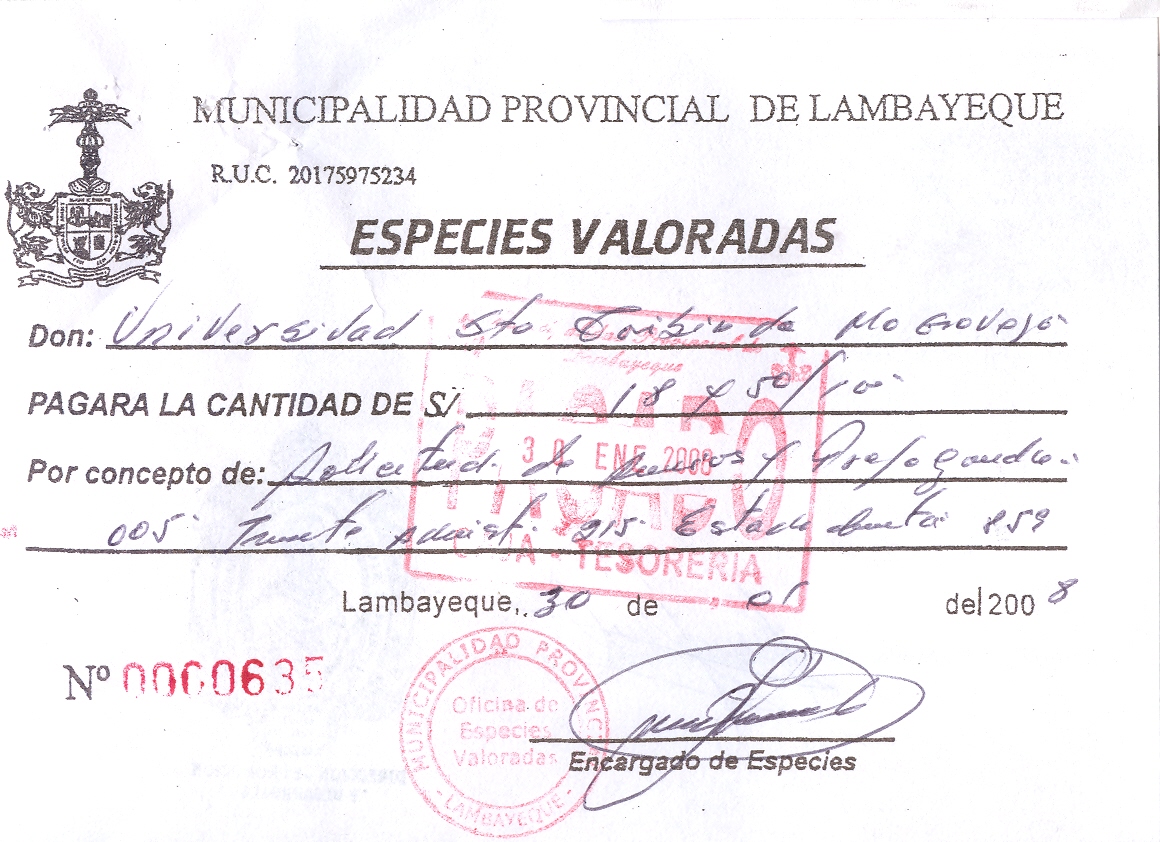 MUNICIPALIDAD PROVINCIAL DE LAMBAYEQUE
R.U.C. 20175975234
ESPECIES VALORADAS
Don: Universidad Sto Toribio de Mogrovejo
PAGARA LA CANTIDAD DE S/ 18 y 50/100
Por concepto de: Solicitud de y Propaganda
005 215 859
PAGADO
30 ENE 2008
CAJA - TESORERIA
Lambayeque, 30 de 01 del 2008
Nº 0000635
MUNICIPALIDAD PROVINCIAL
Oficina de
Especies
Valoradas
- LAMBAYEQUE -
Encargado de Especies